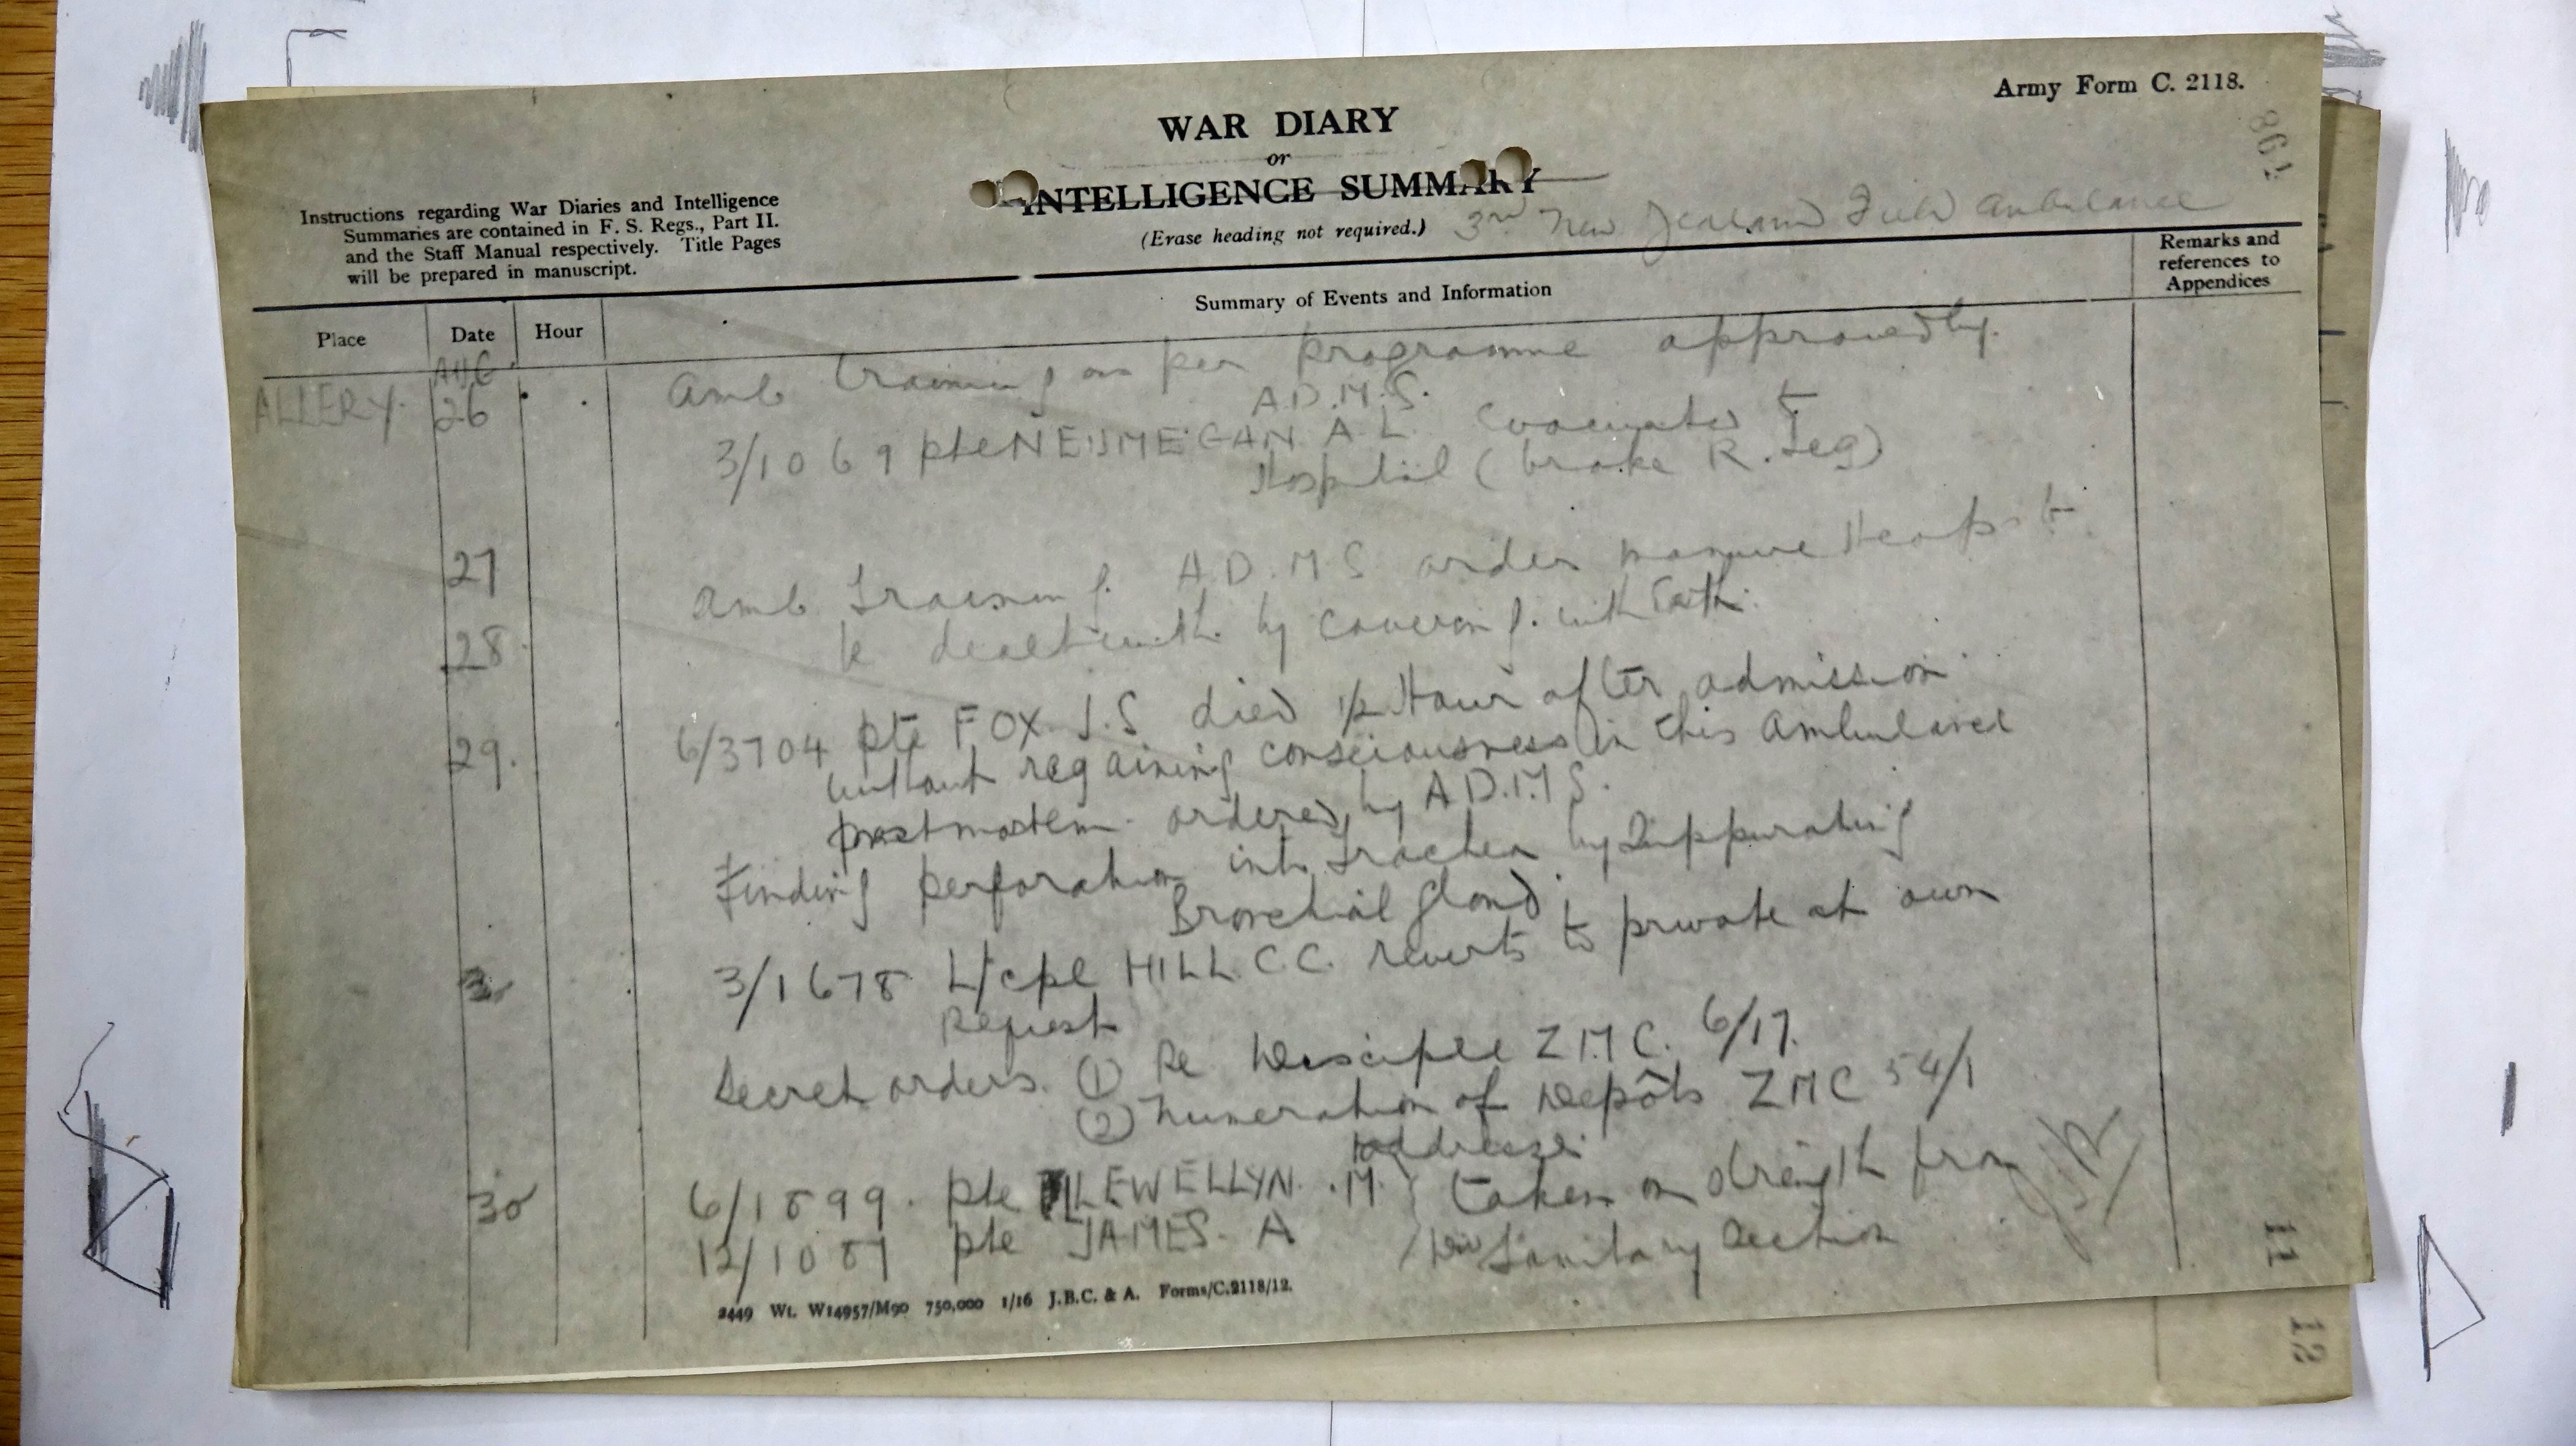 Army Form C. 2118.
WAR DIARY
or
INTELLIGENCE SUMMARY
(Erase heading not required.)
3rd New Zealand Field Ambulance
Instructions regarding War Diaries and Intelligence
Summaries are contained in F. S. Regs., Part II.
and the Staff Manual respectively. Title Pages
will be prepared in manuscript.
Place
Date
Hour
Summary of Events and Information
Remarks and
references to
Appendices
ALLERY. AUG 26
Amb training as per programme approved by.
A.D.M.S.
3/1069 Pte NEIJMEGAN A.L. evacuated to
Hospital (broke R. Leg)
27
Amb Training. A.D.M.S order manure Heaps to
28
be dealt with by covering with Earth.
29.
6/3704 Pte FOX J.S died 1/2 Hour after admission
without regaining consciousness in this Ambulance
postmortem ordered by A.D.M.S.
Finding perforation into Trachea by Suppurating
Bronchial gland.
3/1678 L/cpl HILL C.C. reverts to private at own
Request
Secret orders. (1) Re ZMC. 6/17.
(2) numeration of Depôts ZMC 54/1
address.
30
6/1899. Pte LLEWELLYN. M. } taken on strength from
12/1087 Pte JAMES. A } Sanitary Section
2449 Wt. W14957/M90 750,000 1/16 J.B.C. & A. Forms/C.2118/12.
11
12